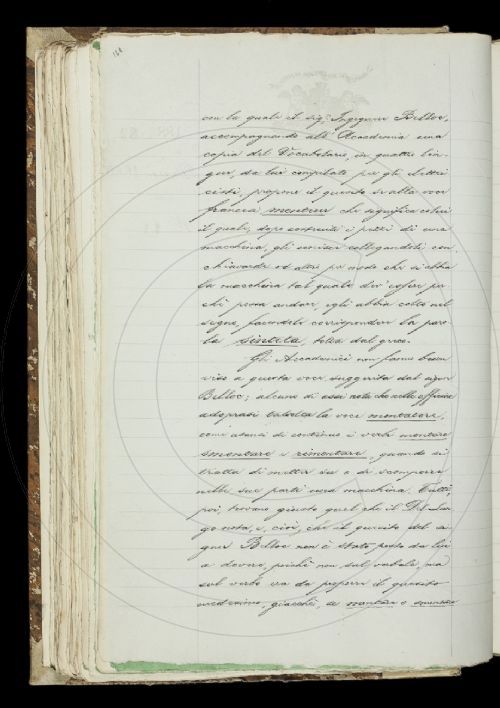 con la quale il sig. Ingegnere Belloc,
accompagnando all'Accademia una
copia del Vocabolario, in quattro lin-
gue, da lui compilato per gli elettri-
cisti, propone il quesito se alla voce
francese monteur che significa colui
il quale, dopo costruiti i pezzi di una
macchina, gli unisce collegandoli con
chiavarde od altro per modo che si abbia
la macchina tal quale dev'esser per-
chè possa andare, egli abbia colto nel
segno, facendole corrispondere la paro-
la sinteta, tolta dal greco.
Gli Accademici non fanno buon
viso a questa voce suggerita dal signor
Belloc; alcuno di essi nota che nelle officine
adoprasi talvolta la voce montatore,
come usansi di continuo i verbi montare
smontare e rimontare, quando si
tratta di metter su o di scomporre
nelle sue parti una macchina. Tutti,
poi, trovano giusto quel che il Del Lun-
go nota, e, cioè, che il quesito del si-
gnor Belloc non è stato posto da lui
a dovere, poichè non sul verbale, ma
sul verbo era da proporre il quesito
medesimo, giacchè, se montare e smontare